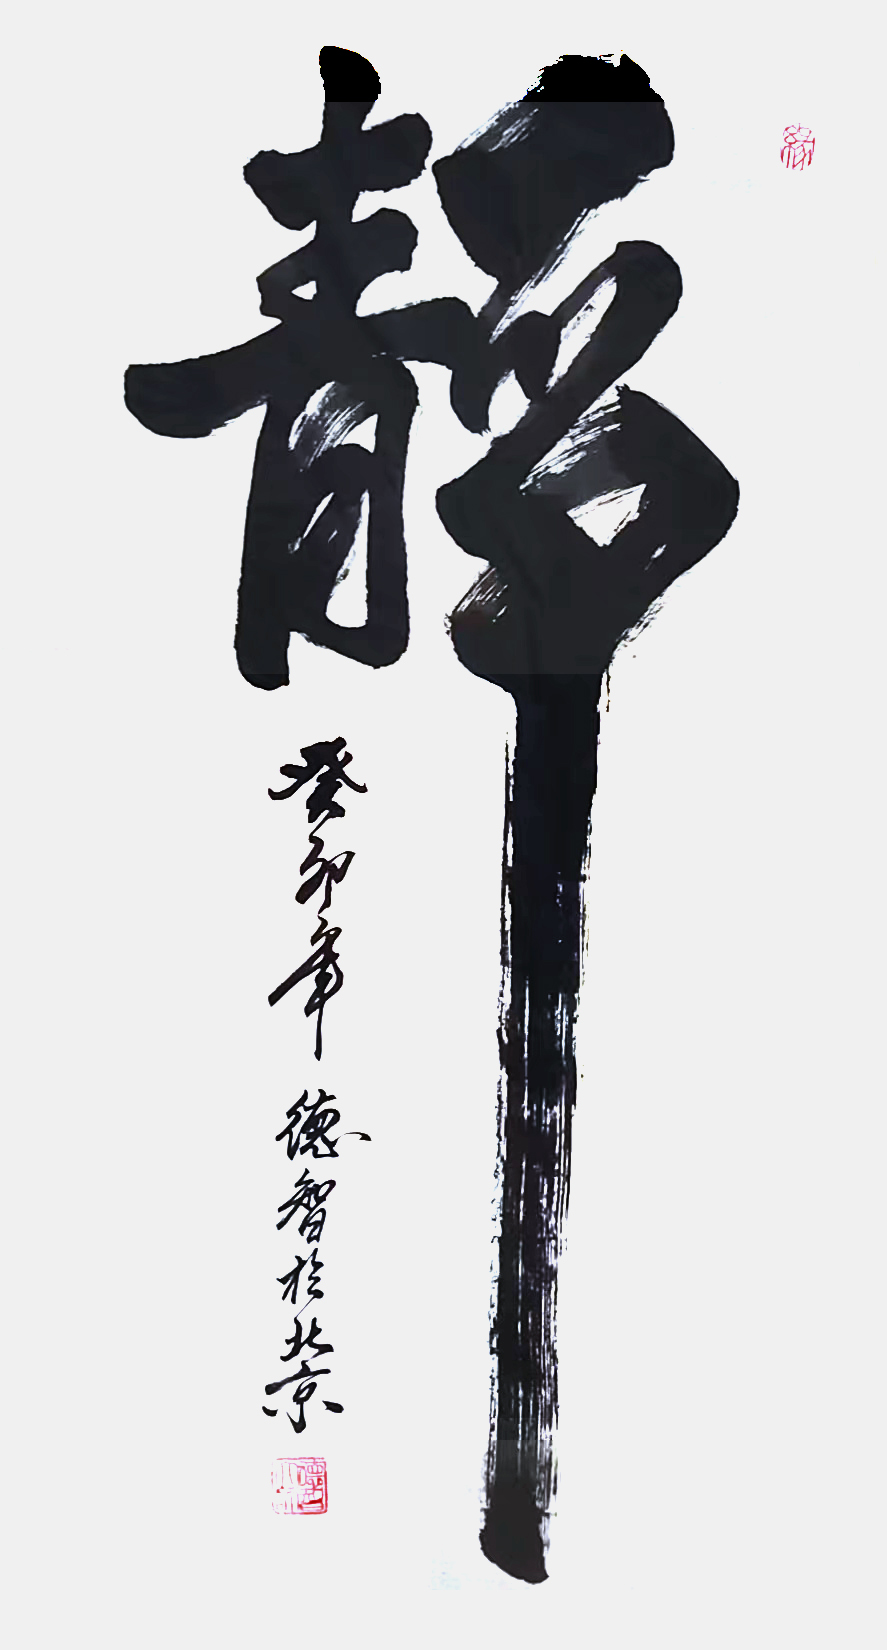 靜
癸卯年 德智於北京
缘